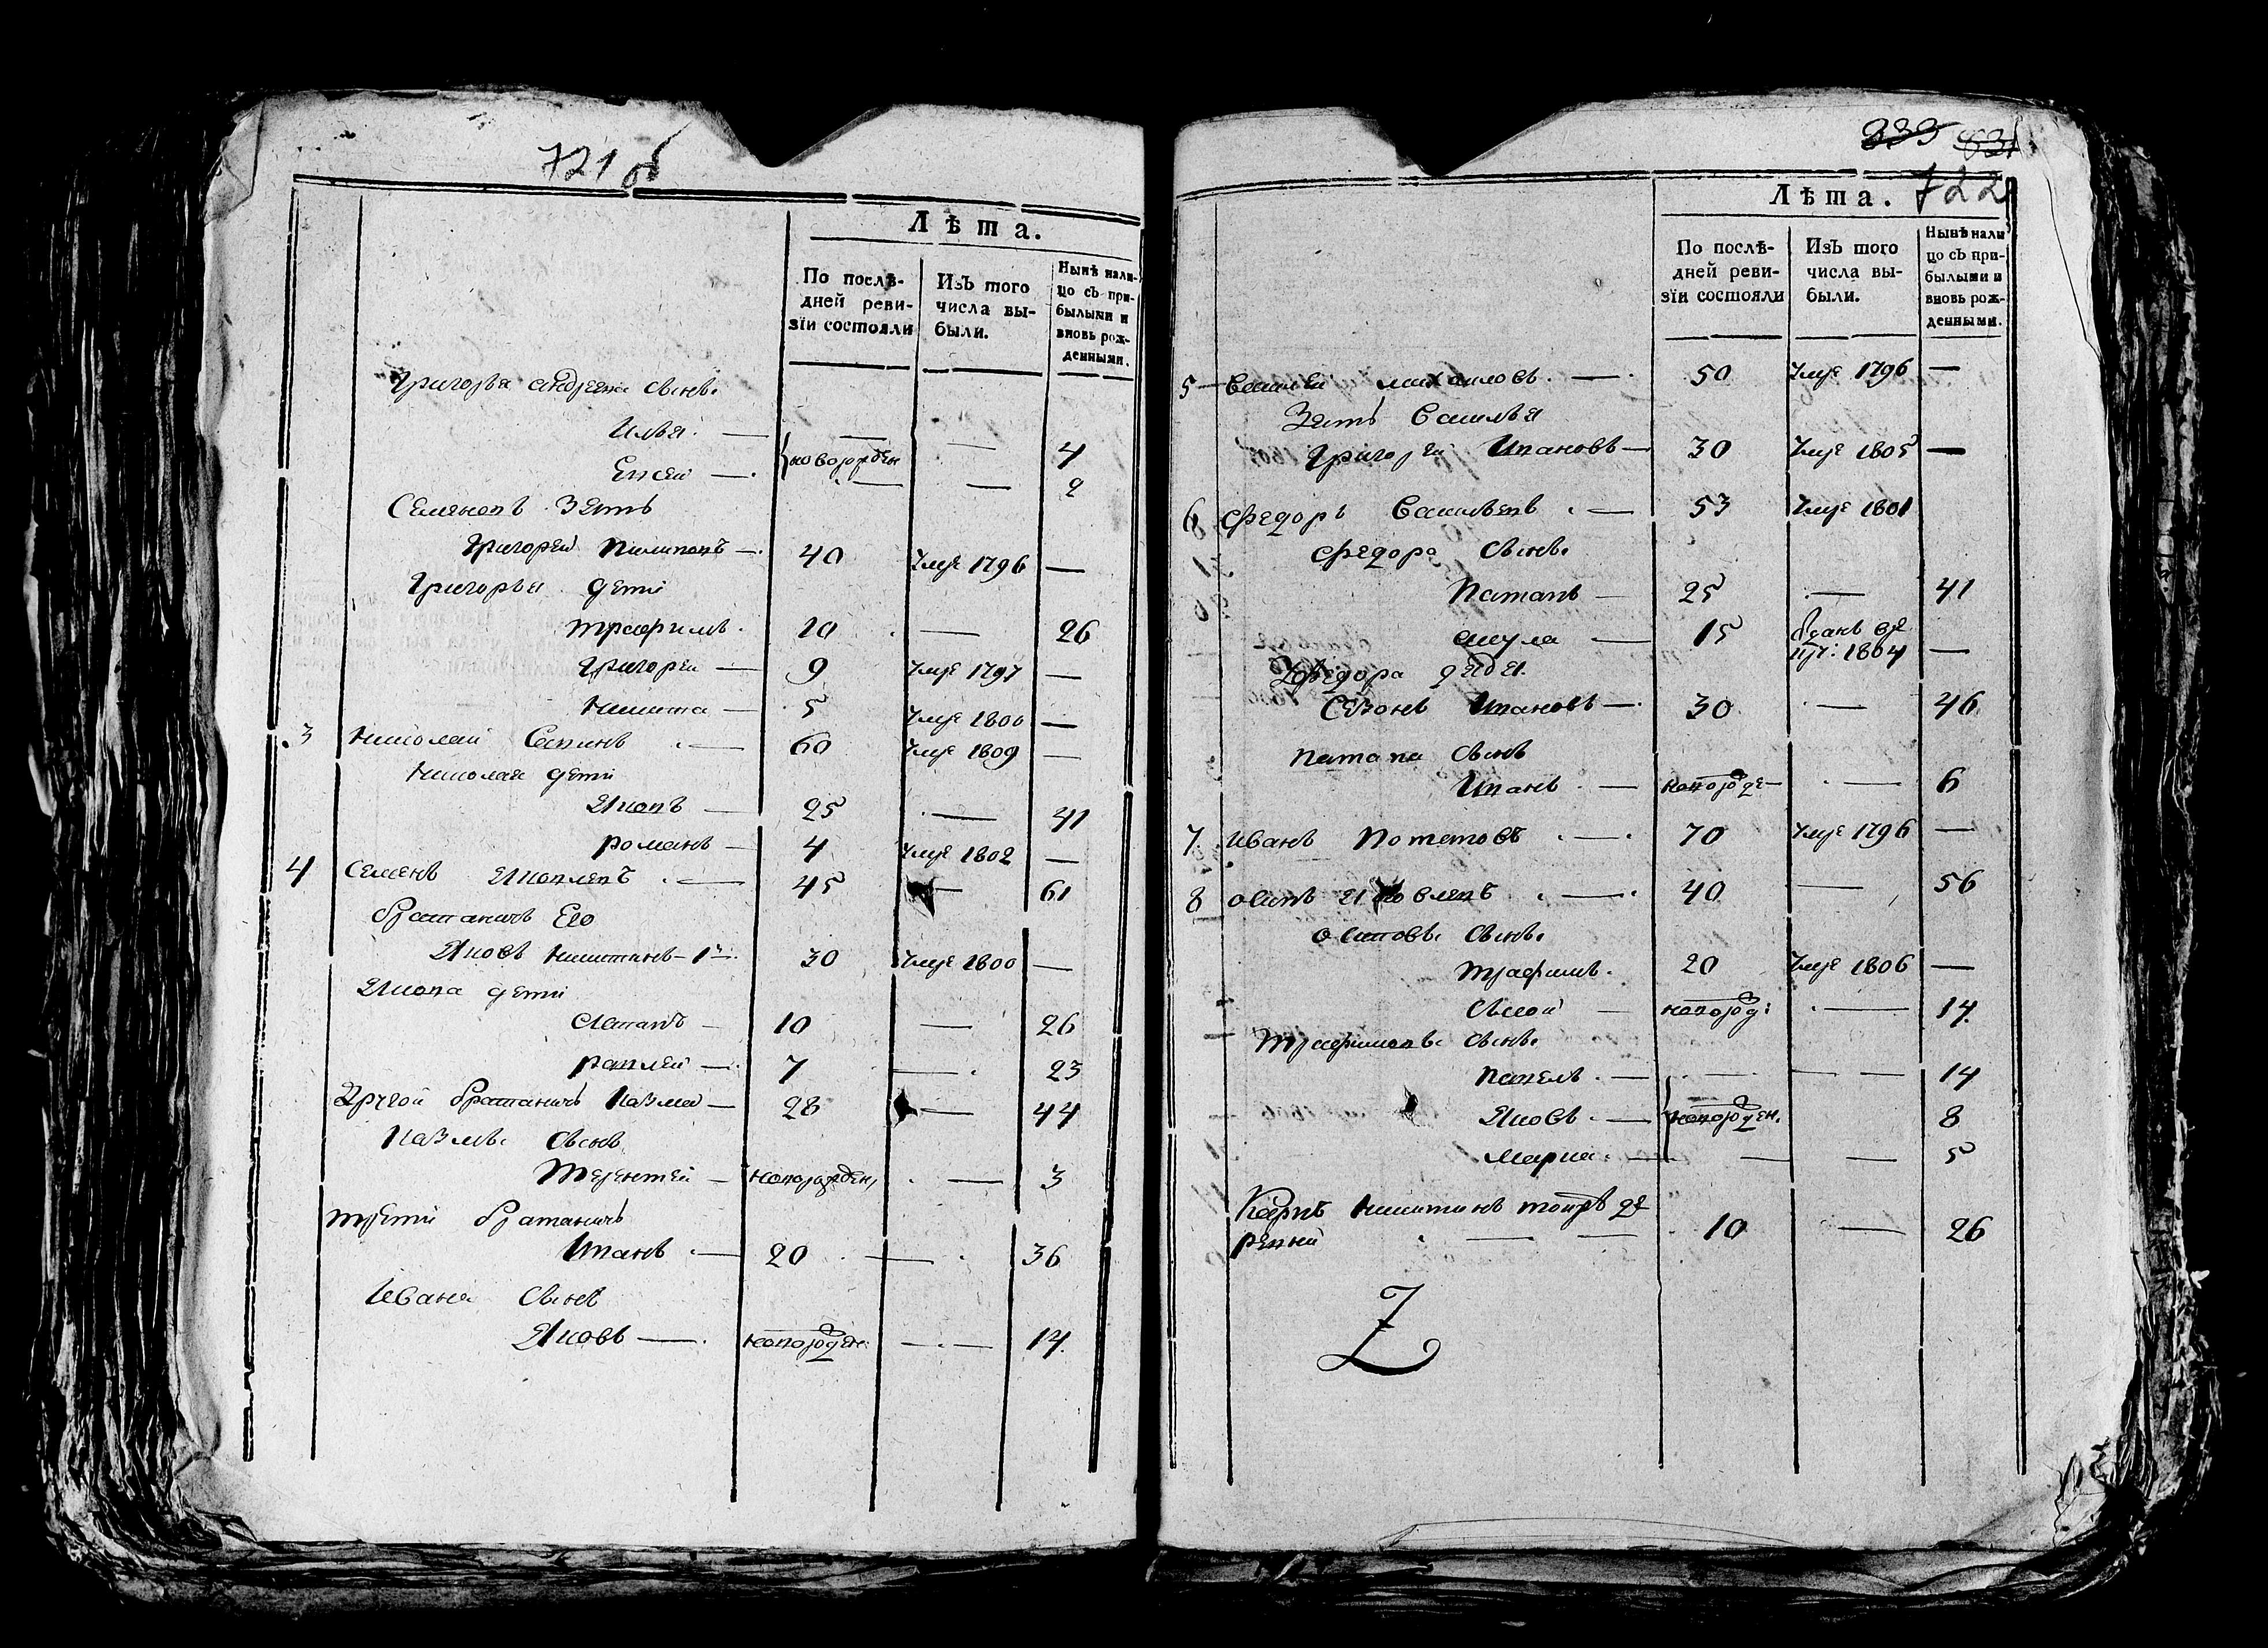 721 об
Лѣта.
По послѣ-
дней реви-
зїи состояли
Изъ того
числа вы-
были.
Нынѣ нали-
цо съ при-
былыми и
вновь рож-
денными.
Григорья андреева сынъ.
Илья. — — — 4
Евсей — новорожден — — 2
Семеновъ зять
Григорей Пилиповъ — 40 Умре 1796 —
Григорья дети
Трафимъ. 10 — 26
Григореи — 9 Умре 1797 —
Никита — 5 Умре 1800 —
3 Николай Савинъ — 60 Умре 1809 —
Николая дети
Яковъ — 25 — 41
романъ — 4 Умре 1802 —
4 Семенъ Яковлевъ — 45 — 61
братаничъ Ево
Яковъ Никитинъ — 1й — 30 Умре 1800 —
Якова дети
10 — 26
7 — 23
Другой братаничъ Козма — 28 — 44
Козмы сынъ
Терентей — новорожден, — 3
третий братаничъ
Иванъ — 20 — 36
Ивана Сынъ
Яковъ — новорожден: — 14
833 831
722
Лѣта.
По послѣ-
дней реви-
зїи состояли
Изъ того
числа вы-
были.
Нынѣ нали
цо съ при-
былыми и
вновь рож-
денными.
5 Василей михаиловъ — 50 Умре 1796 —
Зять Василья
Григорей Ивановъ — 30 Умре 1805 —
6 Федоръ Васильевъ — 53 Умре 1801
Федора Сынъ.
Патапъ — 25 — 41
акула — 15 1804 —
Федора дядя.
Созонъ Ивановъ — 30 — 46
Патапа Сынъ
Иванъ — новорожде — 6
7. Иванъ Потетовъ — 70 Умре 1796 —
8 Осипъ Яковлевъ — 40 — 56
Осиповъ. Сынъ.
Трафимъ. 20 Умре 1806 —
Сысой — новорожд: — 14.
Трафимовъ. Сынъ.
Павелъ — — — — 14
Яковъ — новорожден. 8
Мариа. — — — 5
Карпъ Никитинъ тойжъ де
ревни — — — 10 — 26
Z